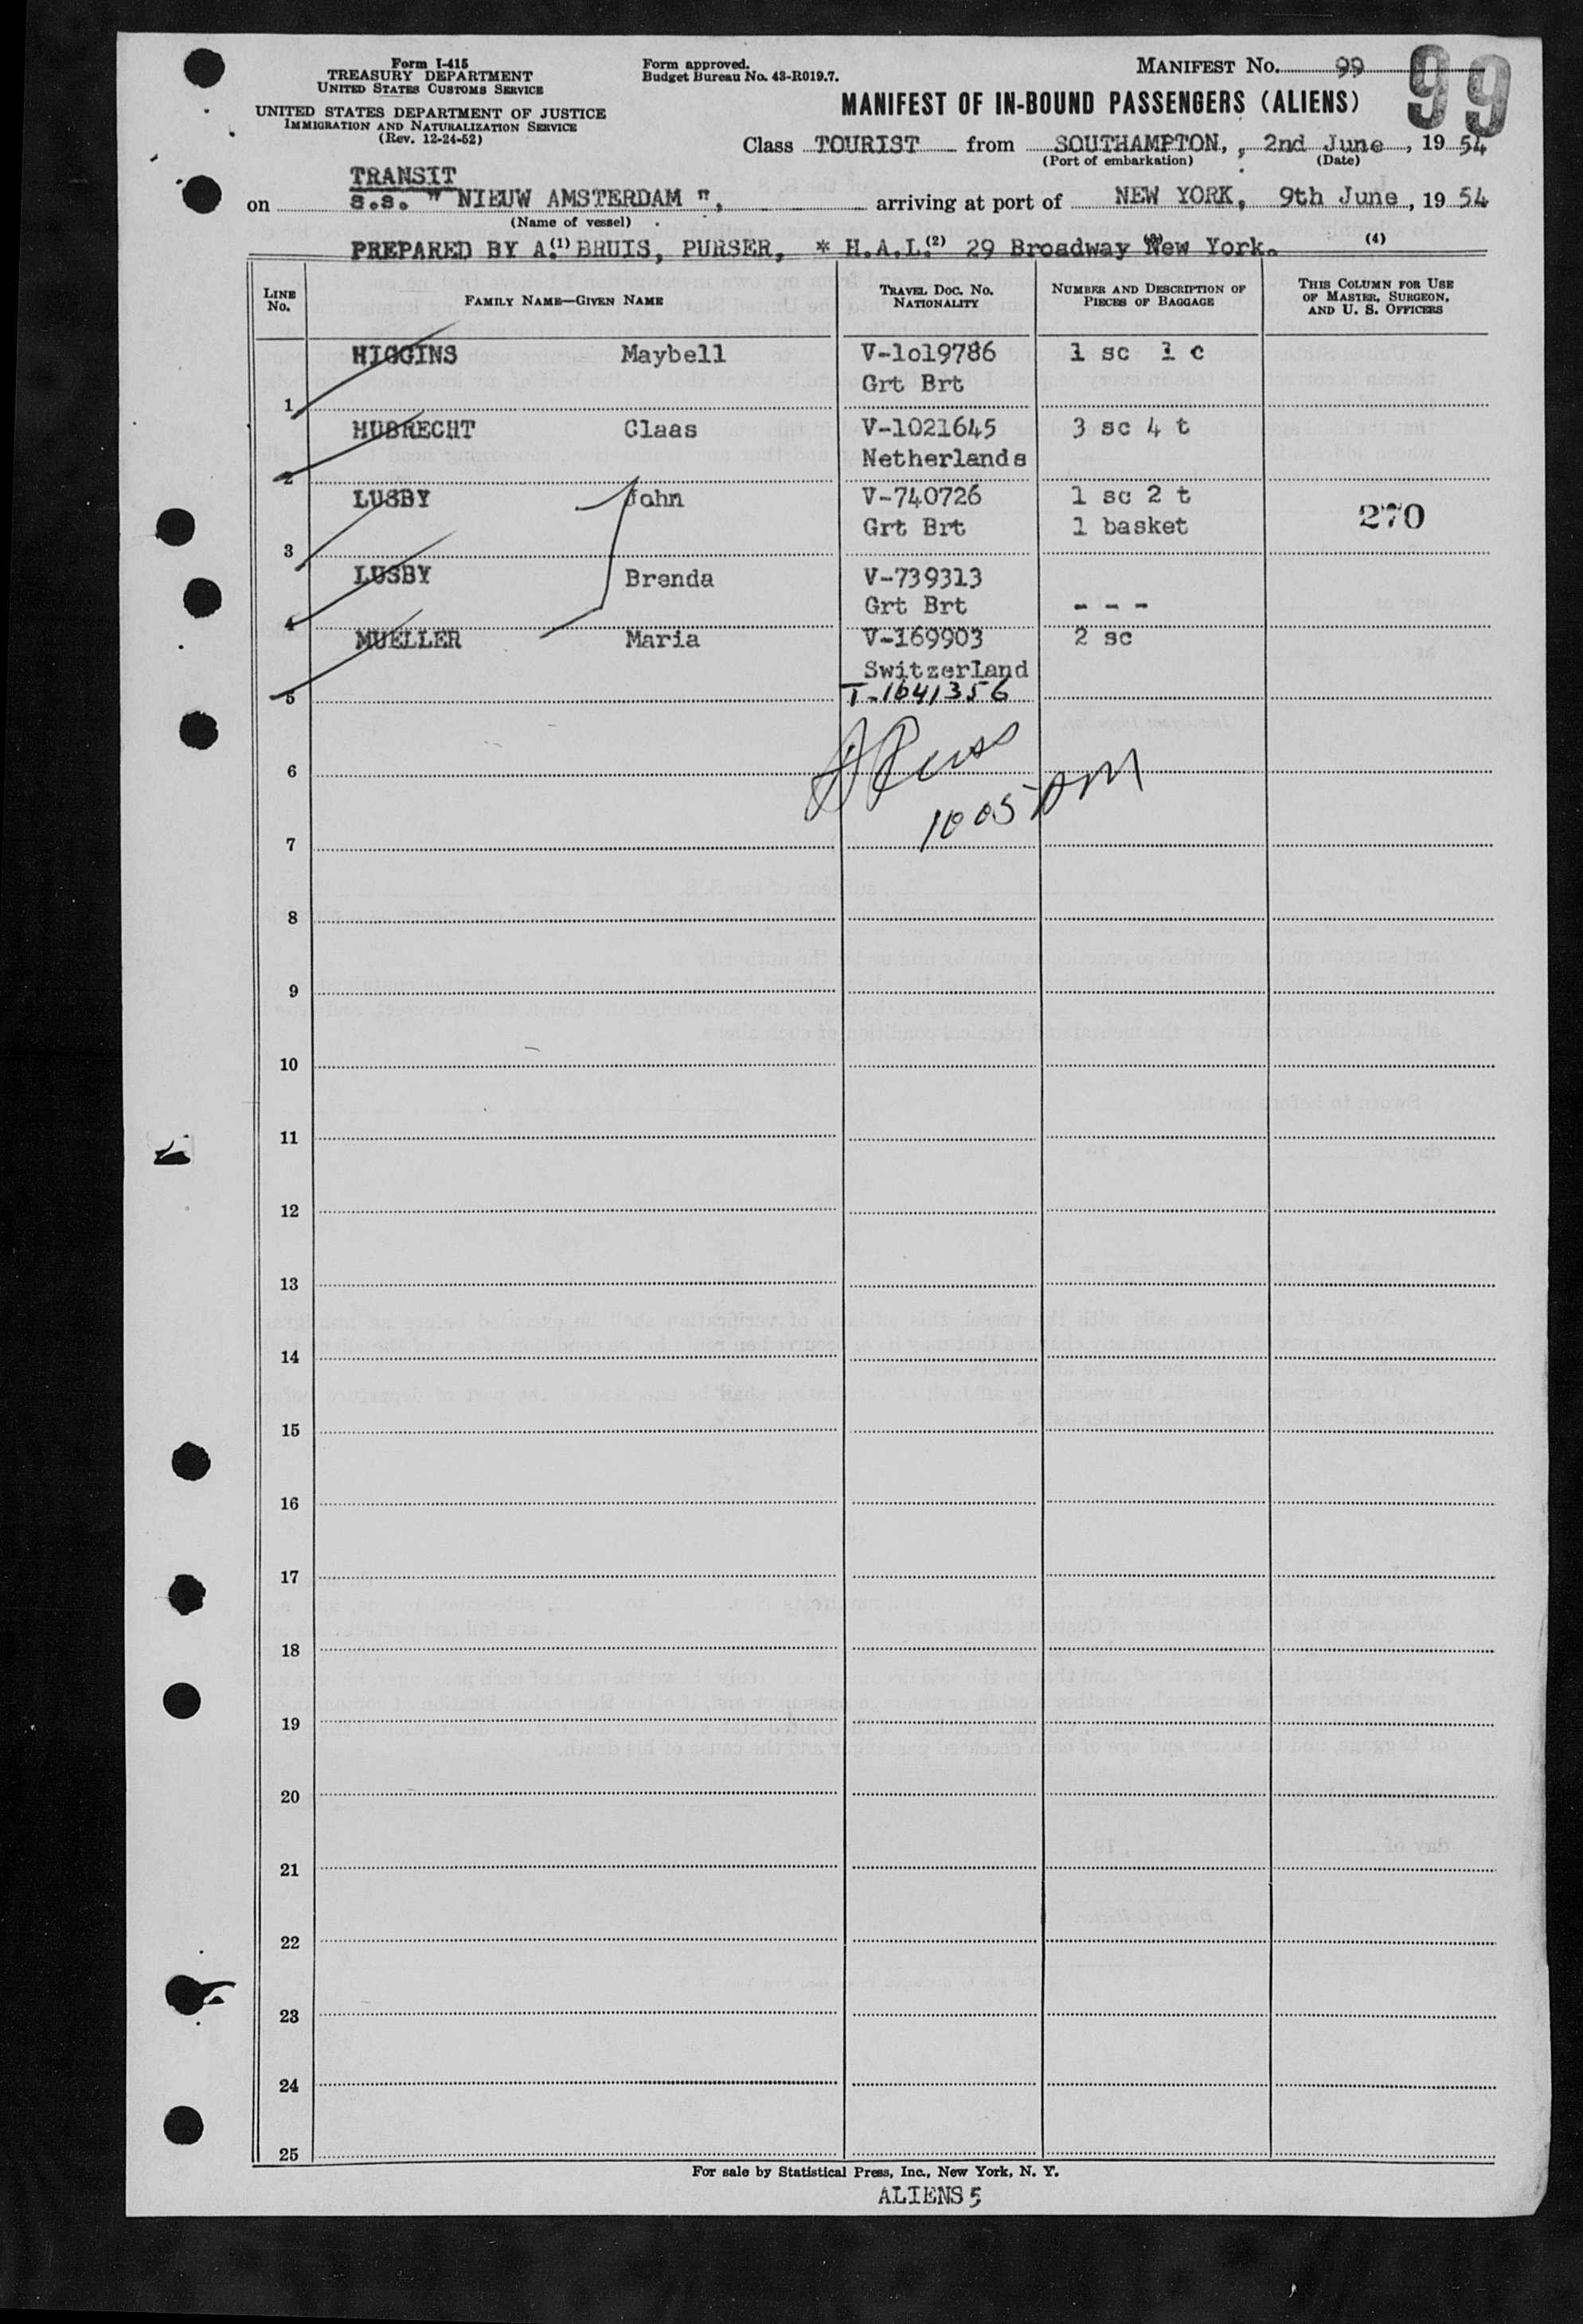 Form I-415
TREASURY DEPARTMENT
UNITED STATES CUSTOMS SERVICE
UNITED STATES DEPARTMENT OF JUSTICE
IMMIGRATION AND NATURALIZATION SERVICE
(Rev. 12-24-52)
Form approved.
Budget Bureau No. 43-R019.7.
MANIFEST NO. 99
99
MANIFEST OF IN-BOUND PASSENGERS (ALIENS)
Class TOURIST from SOUTHAMPTON, , 2nd June , 19 54
(Port of embarkation) (Date)
TRANSIT
on s.s. " NIEUW AMSTERDAM ", arriving at port of NEW YORK, 9th June , 19 54
(Name of vessel)
PREPARED BY A. (1) BRUIS, PURSER, * H.A.L. (2) 29 Broadway (3) New York. (4)
LINE NO. FAMILY NAME—GIVEN NAME TRAVEL DOC. NO. NATIONALITY NUMBER AND DESCRIPTION OF PIECES OF BAGGAGE THIS COLUMN FOR USE OF MASTER, SURGEON, AND U. S. OFFICERS
HIGGINS Maybell V-1o19786 1 sc 1 c
Grt Brt
1
HUBRECHT Claas V-1021645 3 sc 4 t
Netherlands
2
LUSBY John V-740726 1 sc 2 t
Grt Brt 1 basket 270
3
LUSBY Brenda V-739313
Grt Brt - - -
4
MUELLER Maria V-169903 2 sc
Switzerland
5 T-1641356
6
1005 PM
7
8
9
10
11
12
13
14
15
16
17
18
19
20
21
22
23
24
25
For sale by Statistical Press, Inc., New York, N. Y.
ALIENS 5